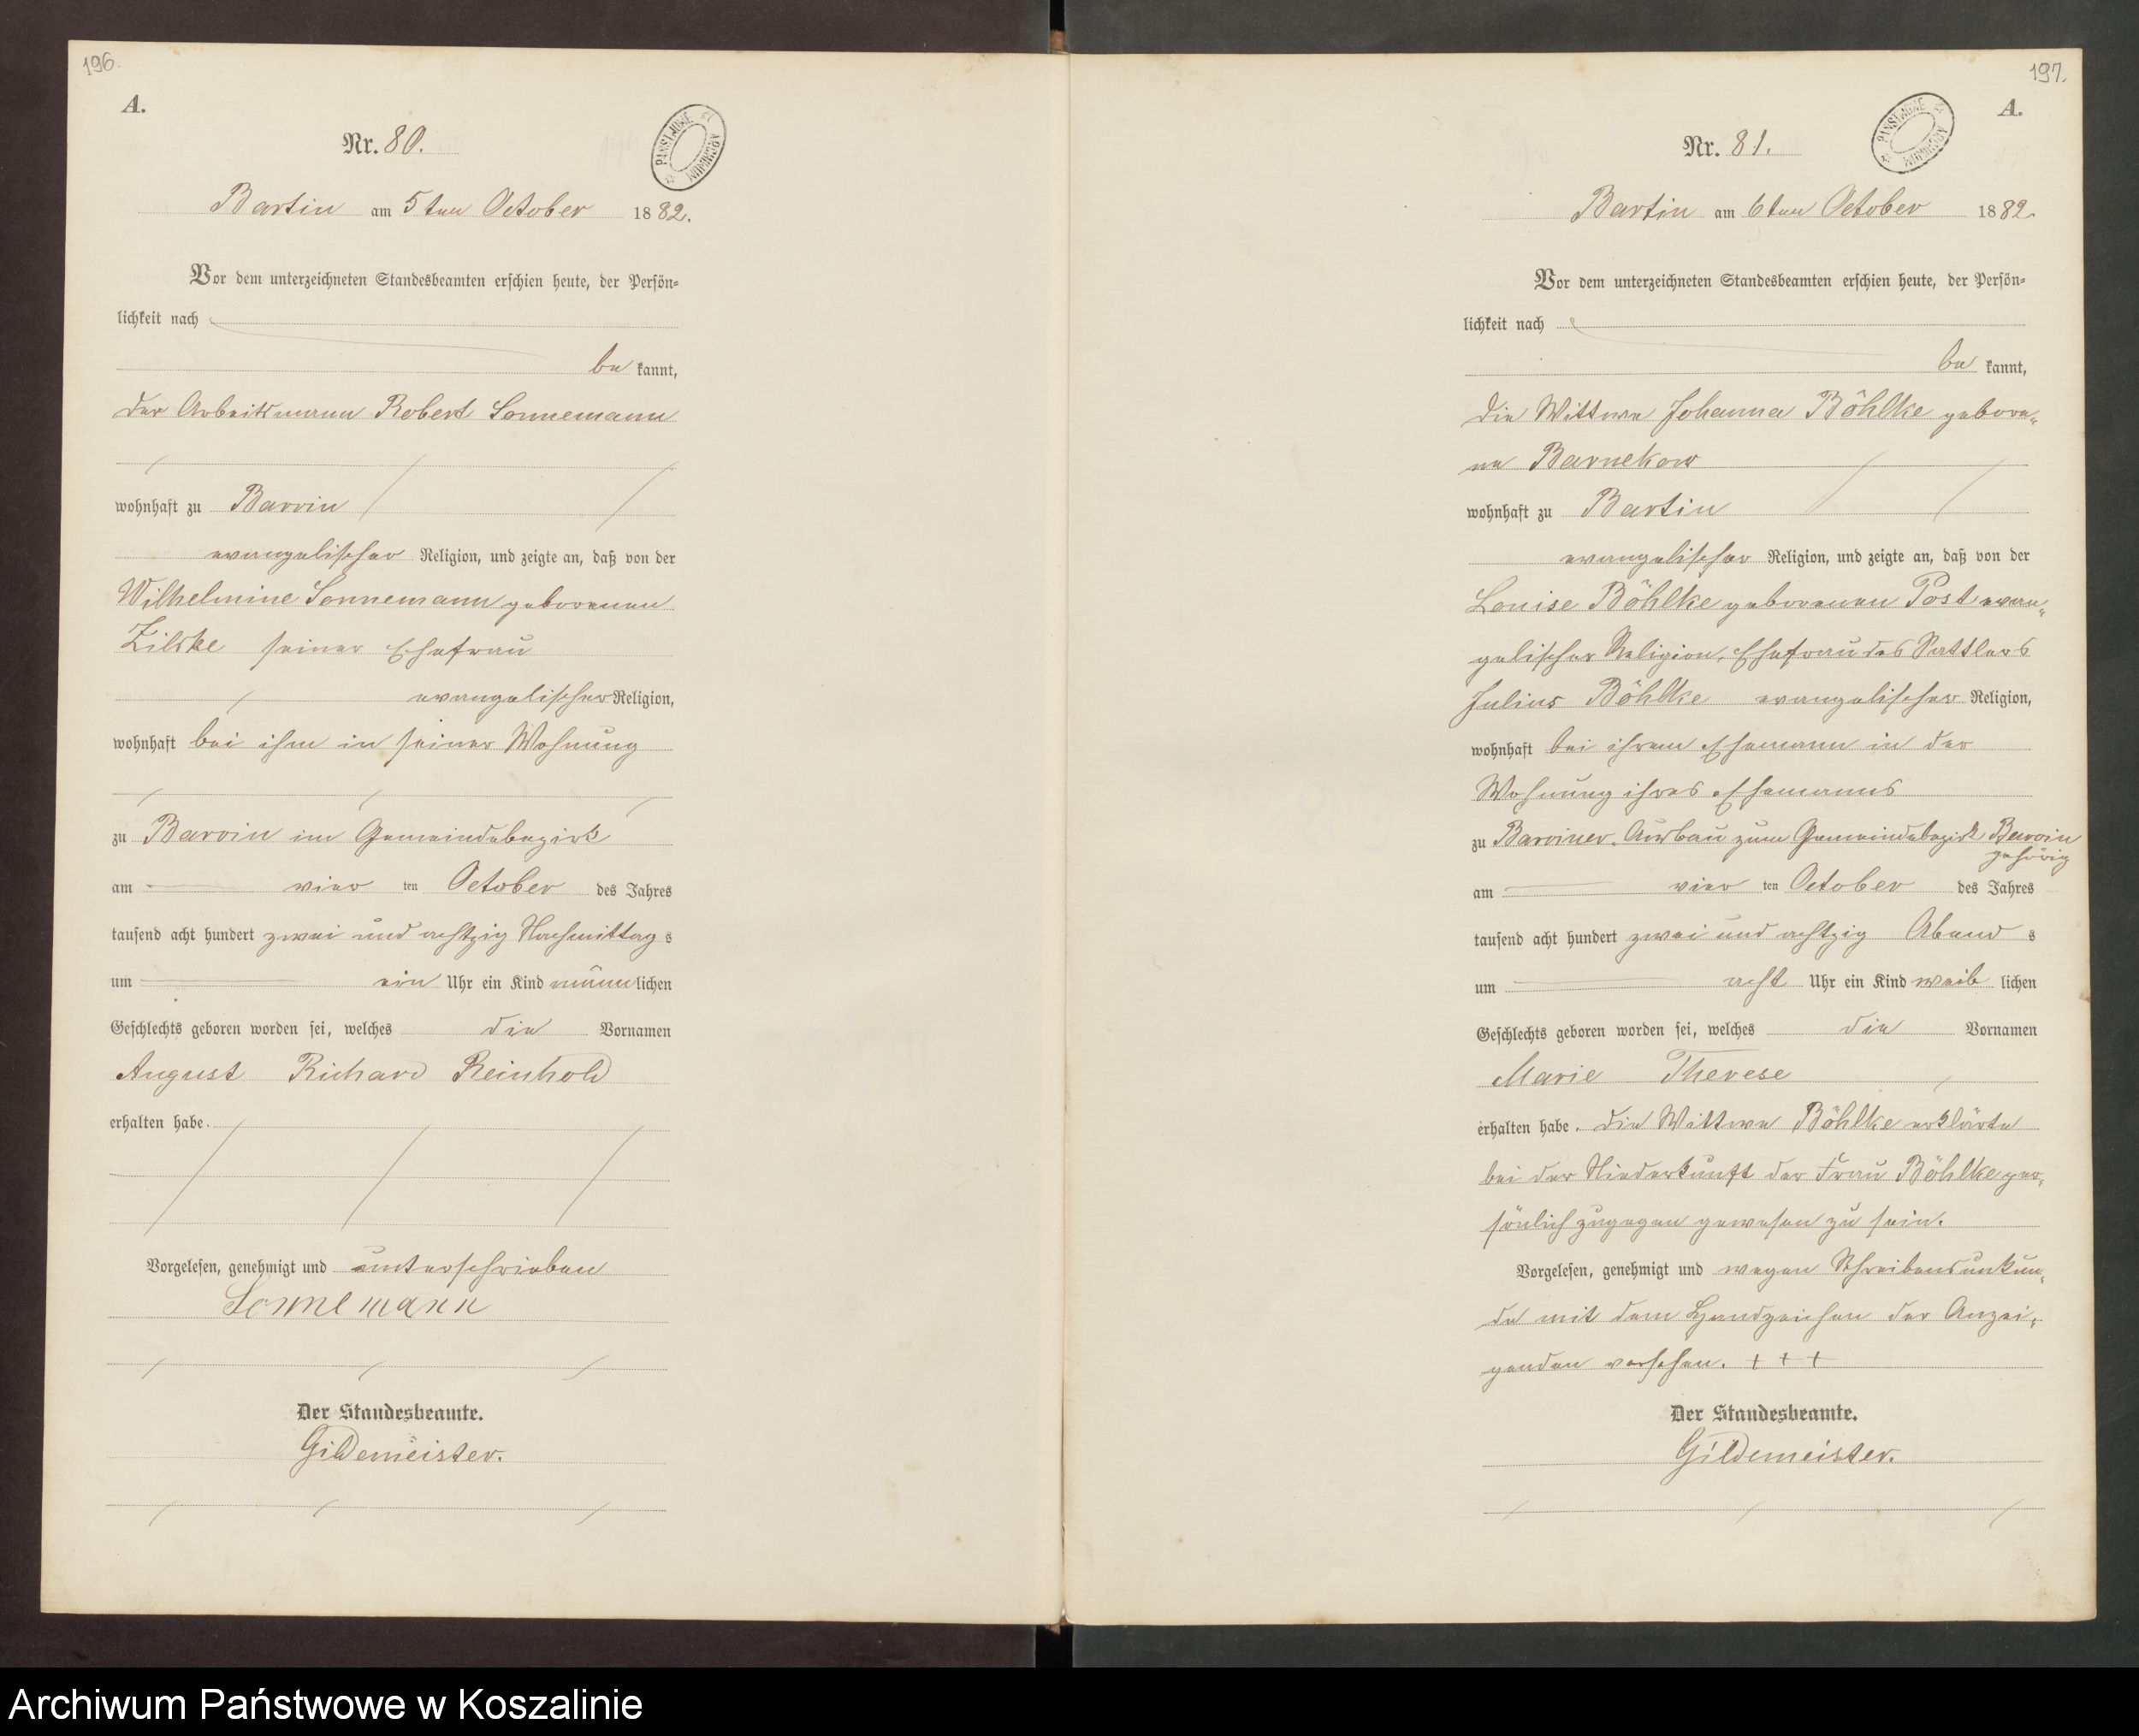 196.
A.
PANSTWOWE ARCHIWUM
Nr. 80.
Bartin am 5ten October 1882.
Vor dem unterzeichneten Standesbeamten erschien heute, der Persön=
lichkeit nach
be kannt,
der Arbeitsmann Robert Sonnemann
wohnhaft zu Barvin
evangelischer Religion, und zeigte an, daß von der
Wilhelmine Sonnemann geborenen
Zilske seiner Ehefrau
evangelischer Religion,
wohnhaft bei ihm in seiner Wohnung
zu Barvin im Gemeindebezirk
am vier ten October des Jahres
tausend acht hundert zwei und achtzig Nachmittags
um ein Uhr ein Kind männlichen
Geschlechts geboren worden sei, welches die Vornamen
August Richard Reinhold
erhalten habe.
Vorgelesen, genehmigt und unterschrieben
Sonnemann
Der Standesbeamte.
Gildemeister.
197.
A.
PANSTWOWE ARCHIWUM
Nr. 81.
Bartin am 6ten October 1882.
Vor dem unterzeichneten Standesbeamten erschien heute, der Persön=
lichkeit nach
be kannt,
die Wittwe Johanna Böhlke gebore=
ne Barnekow
wohnhaft zu Bartin
evangelischer Religion, und zeigte an, daß von der
Louise Böhlke geborenen Post evan=
gelischer Religion, Ehefrau des Sattlers
Julius Böhlke evangelischer Religion,
wohnhaft bei ihrem Ehemann in der
Wohnung ihres Ehemanns
zu Barviner Ausbau zum Gemeindebezirk Barvin
gehörig
am vier ten October des Jahres
tausend acht hundert zwei und achtzig Abends
um acht Uhr ein Kind weib lichen
Geschlechts geboren worden sei, welches die Vornamen
Marie Therese
erhalten habe. Die Wittwe Böhlke erklärte
bei der Niederkunft der Frau Böhlke per=
sönlich zugegen gewesen zu sein.
Vorgelesen, genehmigt und wegen Schreibensunkun=
de mit dem Handzeichen der Anzei=
genden versehen. + + +
Der Standesbeamte.
Gildemeister.
Archiwum Państwowe w Koszalinie